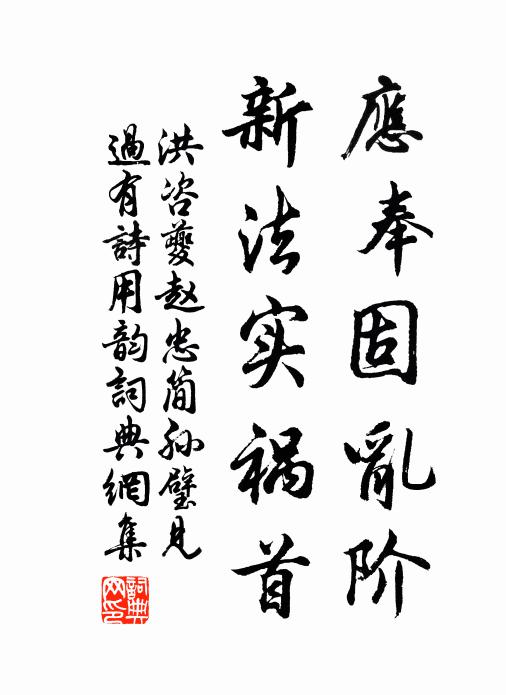 應奉固亂阶
新法实祸首
洪咨夔赵忠简孙璧见
過有詩用韵詞典網集
詞典网印